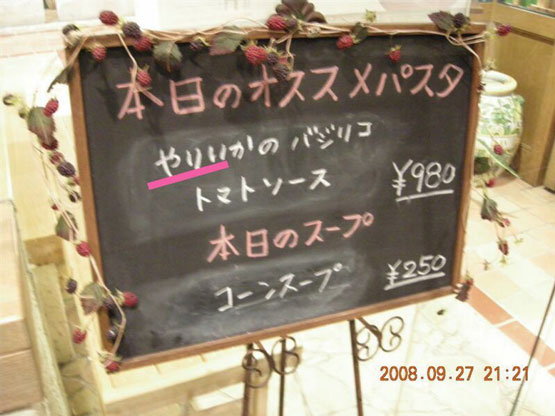 本日のオススメパスタ
やりいかの バジリコ
トマトソース
¥980
本日のスープ
コーンスープ
¥250
2008.09.27 21:21